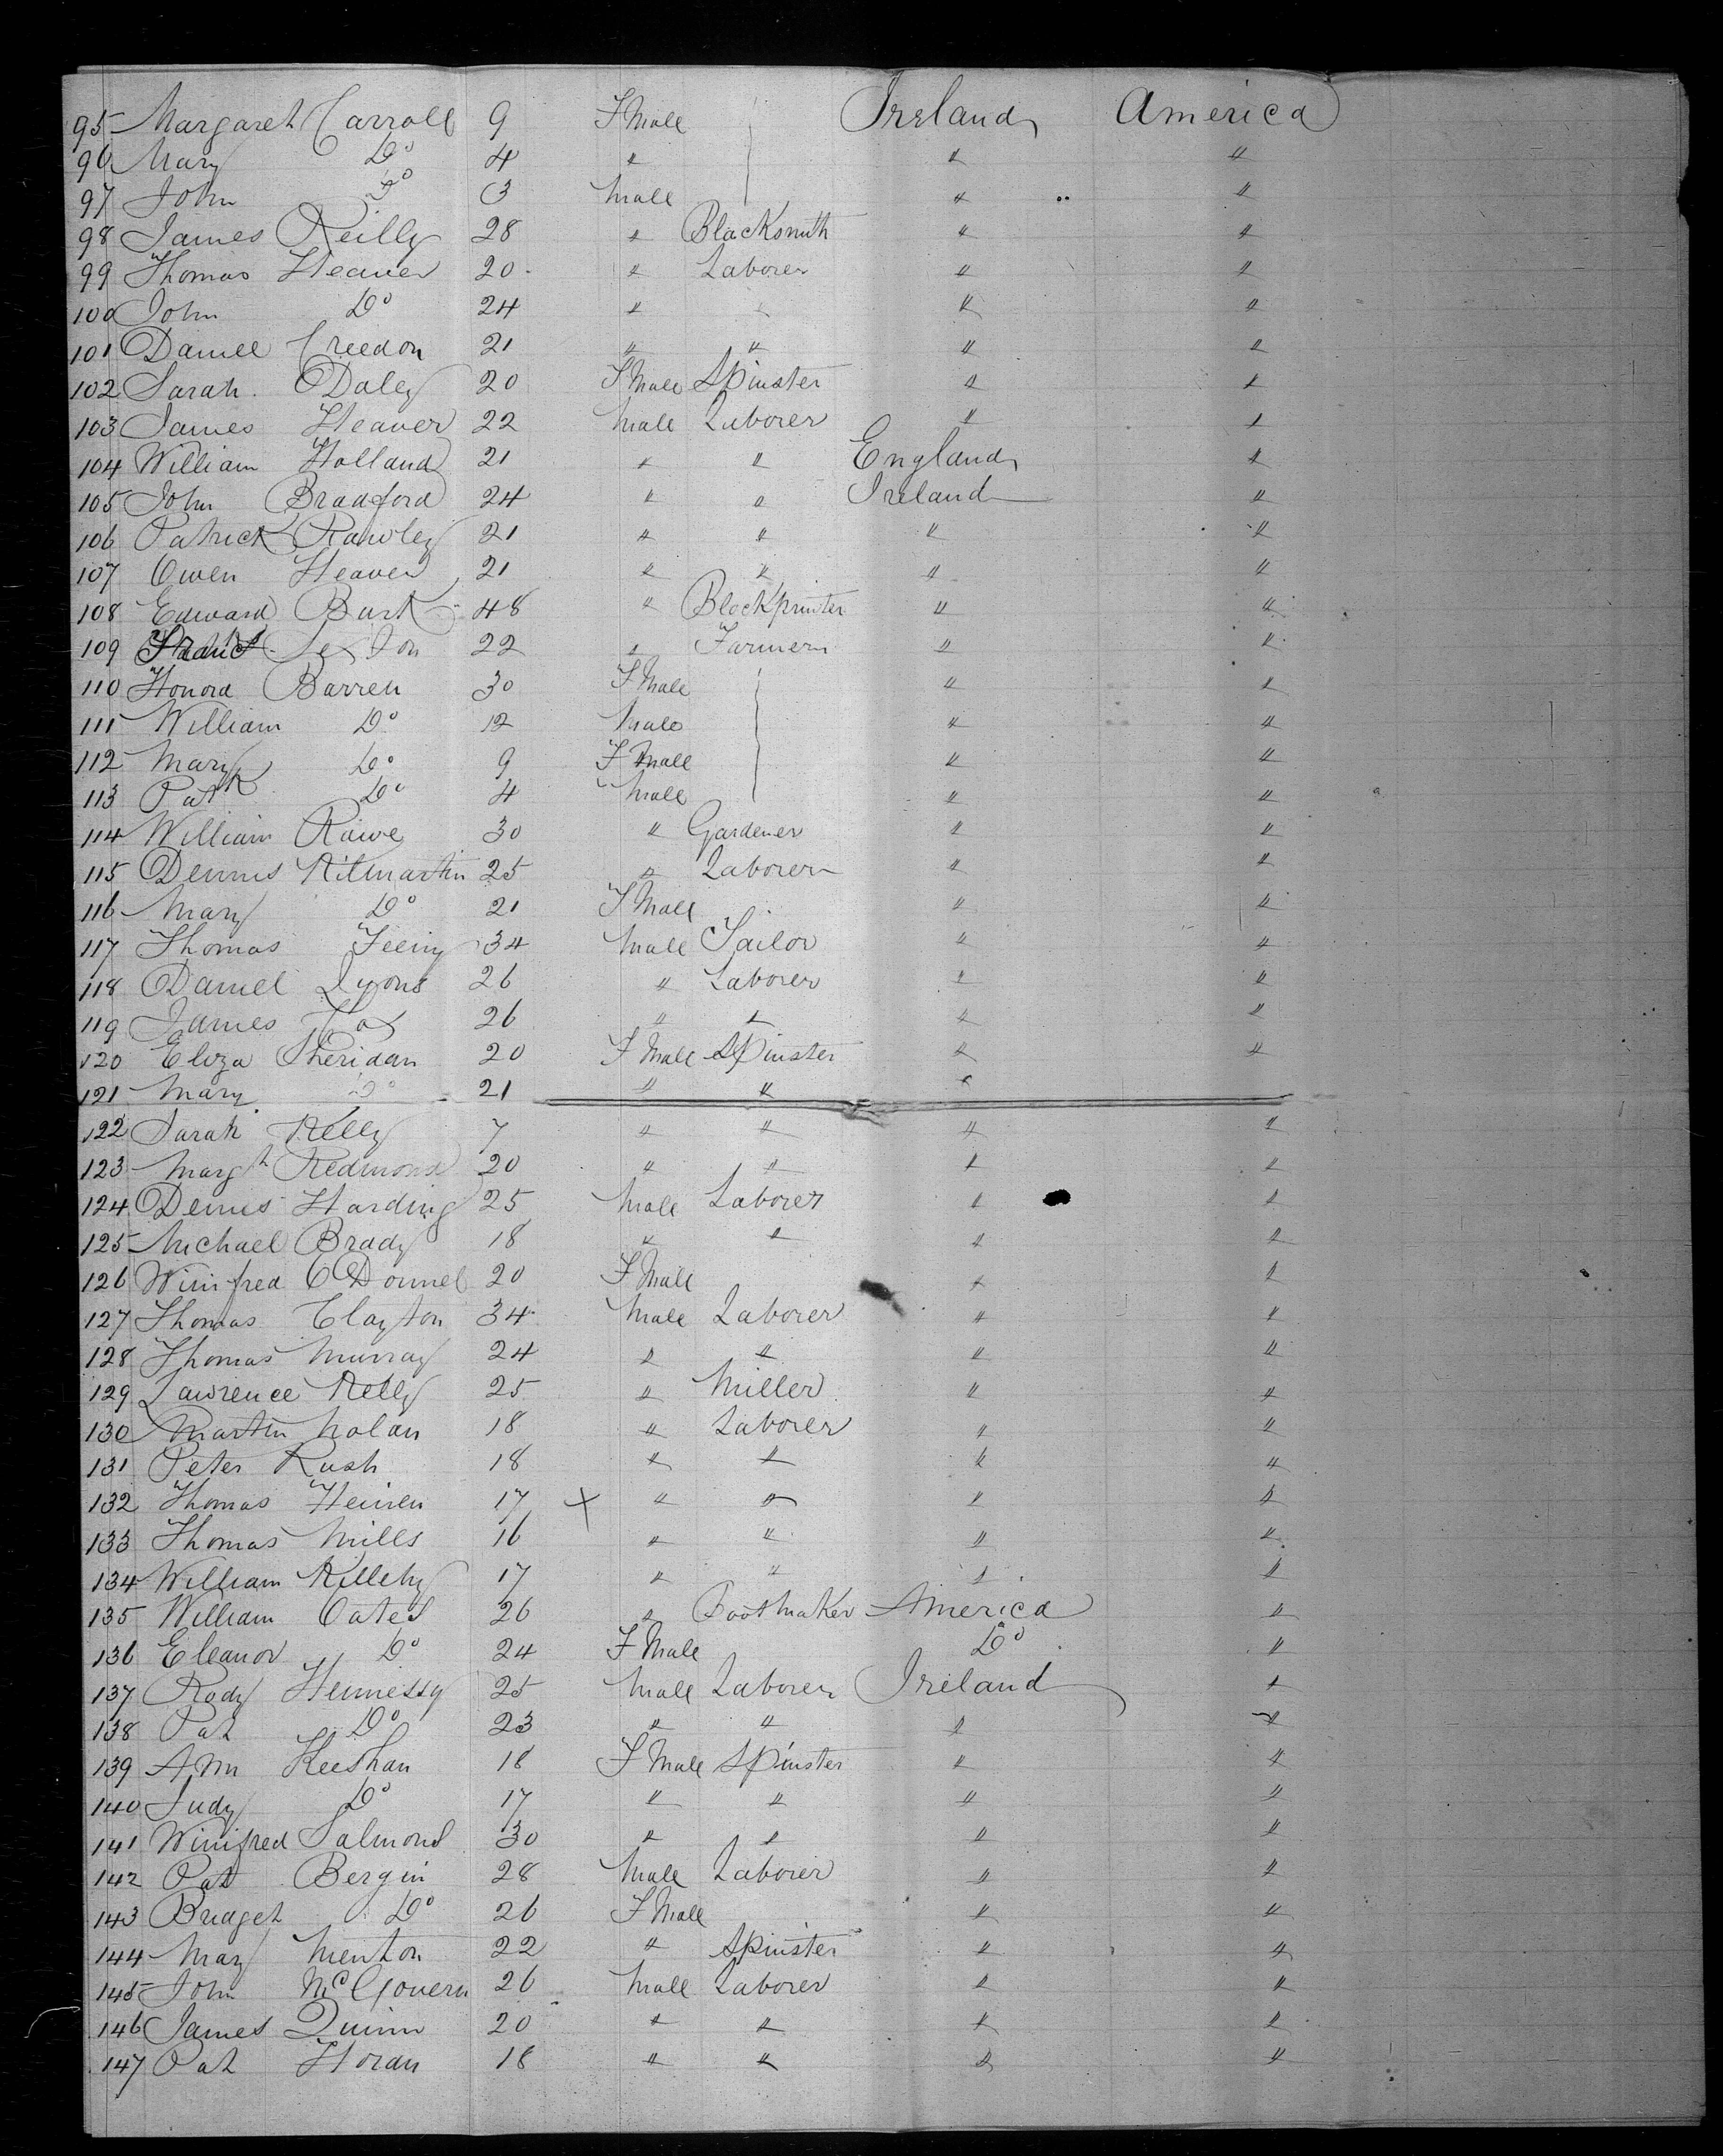 95 Margaret Carroll 9 F Male Ireland America
96 Mary Do 4 " " "
97 John Do 3 Male " "
98 James Reilly 28 " Blacksmith " "
99 Thomas Heaver 20 " Laborer " "
100 John Do 24 " " " "
101 Daniel Creedon 21 " " " "
102 Sarah Daley 20 F Male Spinster " "
103 James Heaver 22 Male Laborer " "
104 William Holland 21 " " England "
105 John Bradford 24 " " Ireland "
106 Patrick Rawley 21 " " " "
107 Owen Heaver 21 " " " "
108 Edward Burk 48 " Blockprinter " "
109 Sexton 22 " Farmer " "
110 Honora Barren 30 F Male " "
111 William Do 12 Male " "
112 Mary Do 9 F Male " "
113 Patk Do 4 Male " "
114 William Rawe 30 " Gardener " "
115 Dennis Kilmartin 25 " Laborer " "
116 Mary Do 21 F Male " "
117 Thomas Feeiny 34 Male Tailor " "
118 Daniel Lyons 26 " Laborer " "
119 James Fox 26 " " " "
120 Eliza Sheridan 20 F Male Spinster " "
121 Mary Do 21 " " "
122 Sarah Kelly 7 " " " "
123 Margt Redmond 20 " " " "
124 Denis Harding 25 Male Laborer " "
125 Michael Brady 18 " " " "
126 Winifred ODonnel 20 F Male " "
127 Thomas Clayton 34 Male Laborer " "
128 Thomas Murray 24 " " " "
129 Lawrence Kelly 25 " Miller " "
130 Martin Nolan 18 " Laborer " "
131 Peter Rush 18 " " " "
132 Thomas Heinen 17 X " " " "
133 Thomas Mills 16 " " " "
134 William Killehy 17 " " " "
135 William Oates 26 " Bootmaker America "
136 Eleanor Do 24 F Male Do "
137 Rody Hennessy 25 Male Laborer Ireland "
138 Pat Do 23 " " " "
139 Ann Keeshan 18 F Male Spinster " "
140 Judy Do 17 " " " "
141 Winifred Salmond 30 " " " "
142 Pat Bergin 28 Male Laborer " "
143 Bridget Do 26 F Male " "
144 Mary Menton 22 " Spinster " "
145 John McGovern 26 Male Laborer " "
146 James Quinn 20 " " " "
147 Pat Horan 18 " " " "